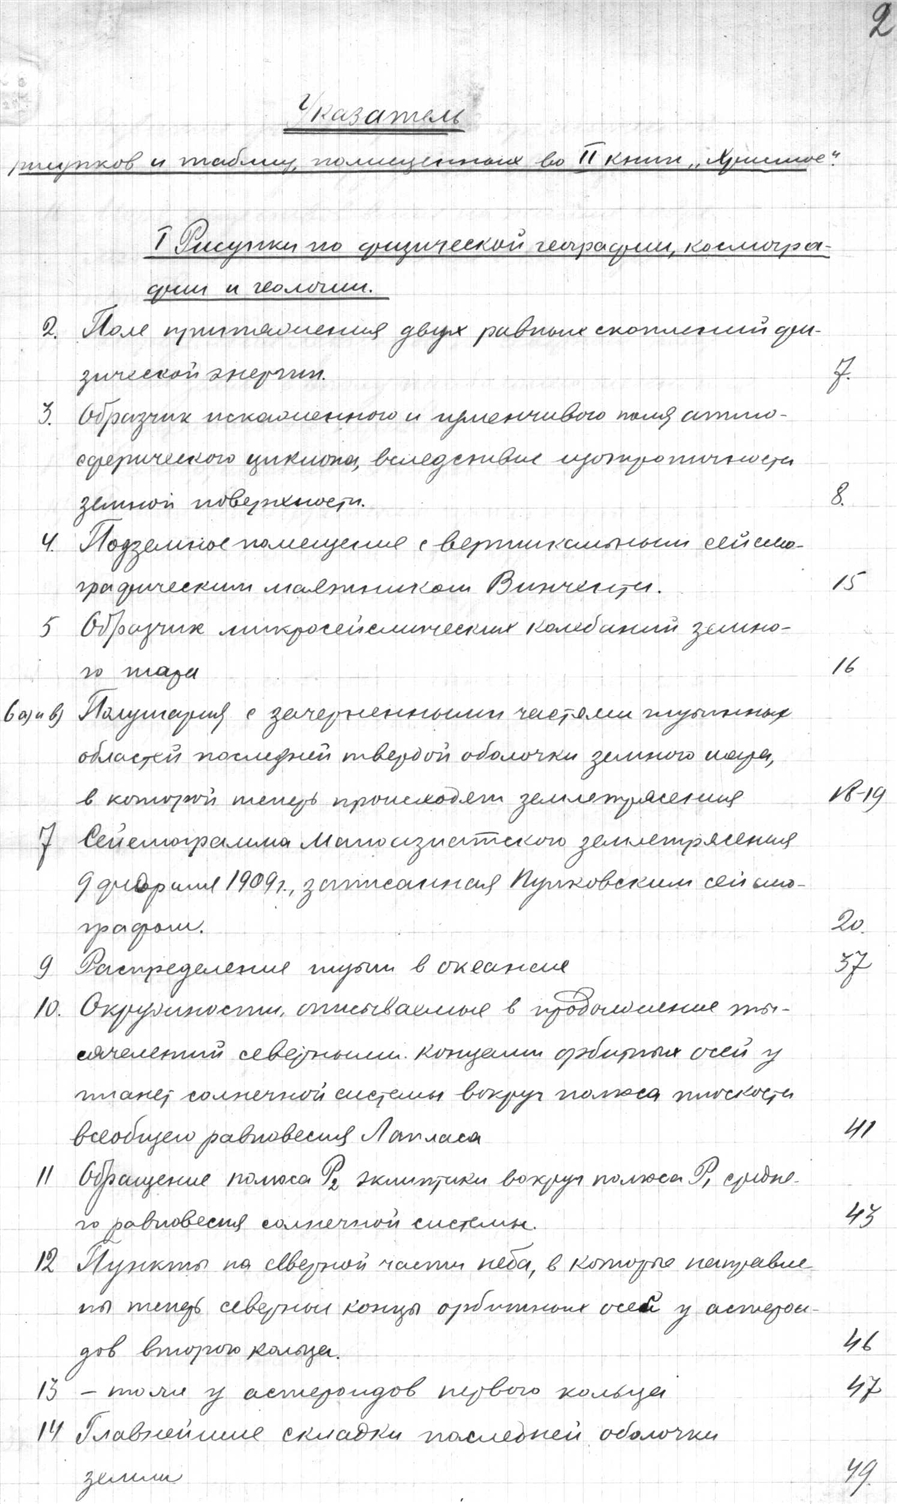 2
Указатель
рисунков и таблиц, помещенных во II книге „Христос“.
I Рисунки по физической географии, космогра-
фии и геологии.
2. Поле притяжения двух равных скоплений фи-
зической энергии. 7.
3. Образчик искаженного и изменчивого поля атмо-
сферического циклона, вследствие изотропичности
земной поверхности. 8.
4. Подземное помещение с вертикальным сейсмо-
графическим маятником Винченти. 15
5 Образчик микросейсмических колебаний земно-
го шара 16
6 а) и в) Полушария с зачерненными частями
областей последней твердой оболочки земного шара,
в которой теперь происходят землетрясения 18-19
7 Сейсмограмма Малоазиатского землетрясения
9 февраля 1909 г., записанная Пулковским сейсмо-
графом. 20.
9 Распределение суши в океане 37
10. Окружности, описываемые в продолжение ты-
сячелетий северными концами орбитных осей у
планет солнечной системы вокруг полюса плоскости
всеобщего равновесия Лапласа 41
11 Обращение полюса P2 эклиптики вокруг полюса P1 средне-
го равновесия солнечной системы. 43
12 Пункты на северной части неба, в которые направле-
ны теперь северные концы орбитных осей у астерои-
дов второго кольца. 46
13 – тоже у астероидов первого кольца 47
14 Главнейшие складки последней оболочки
земли 49.